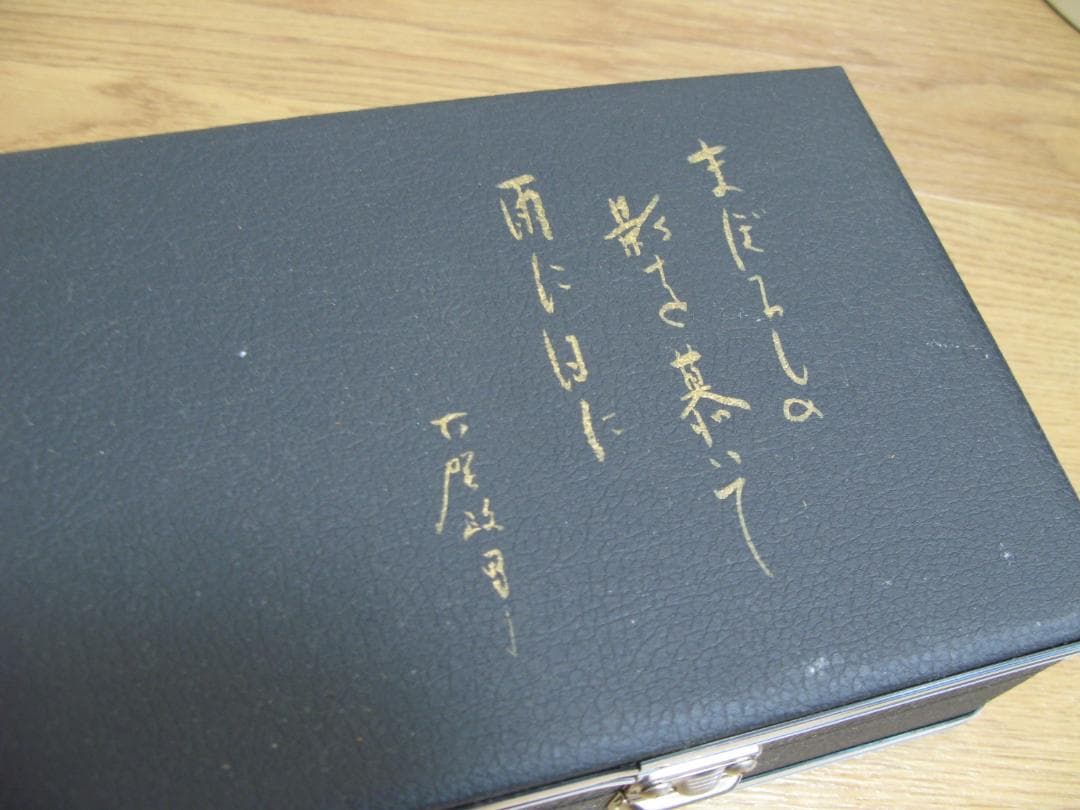 まぼろしの
影を慕いて
雨に日に
政男